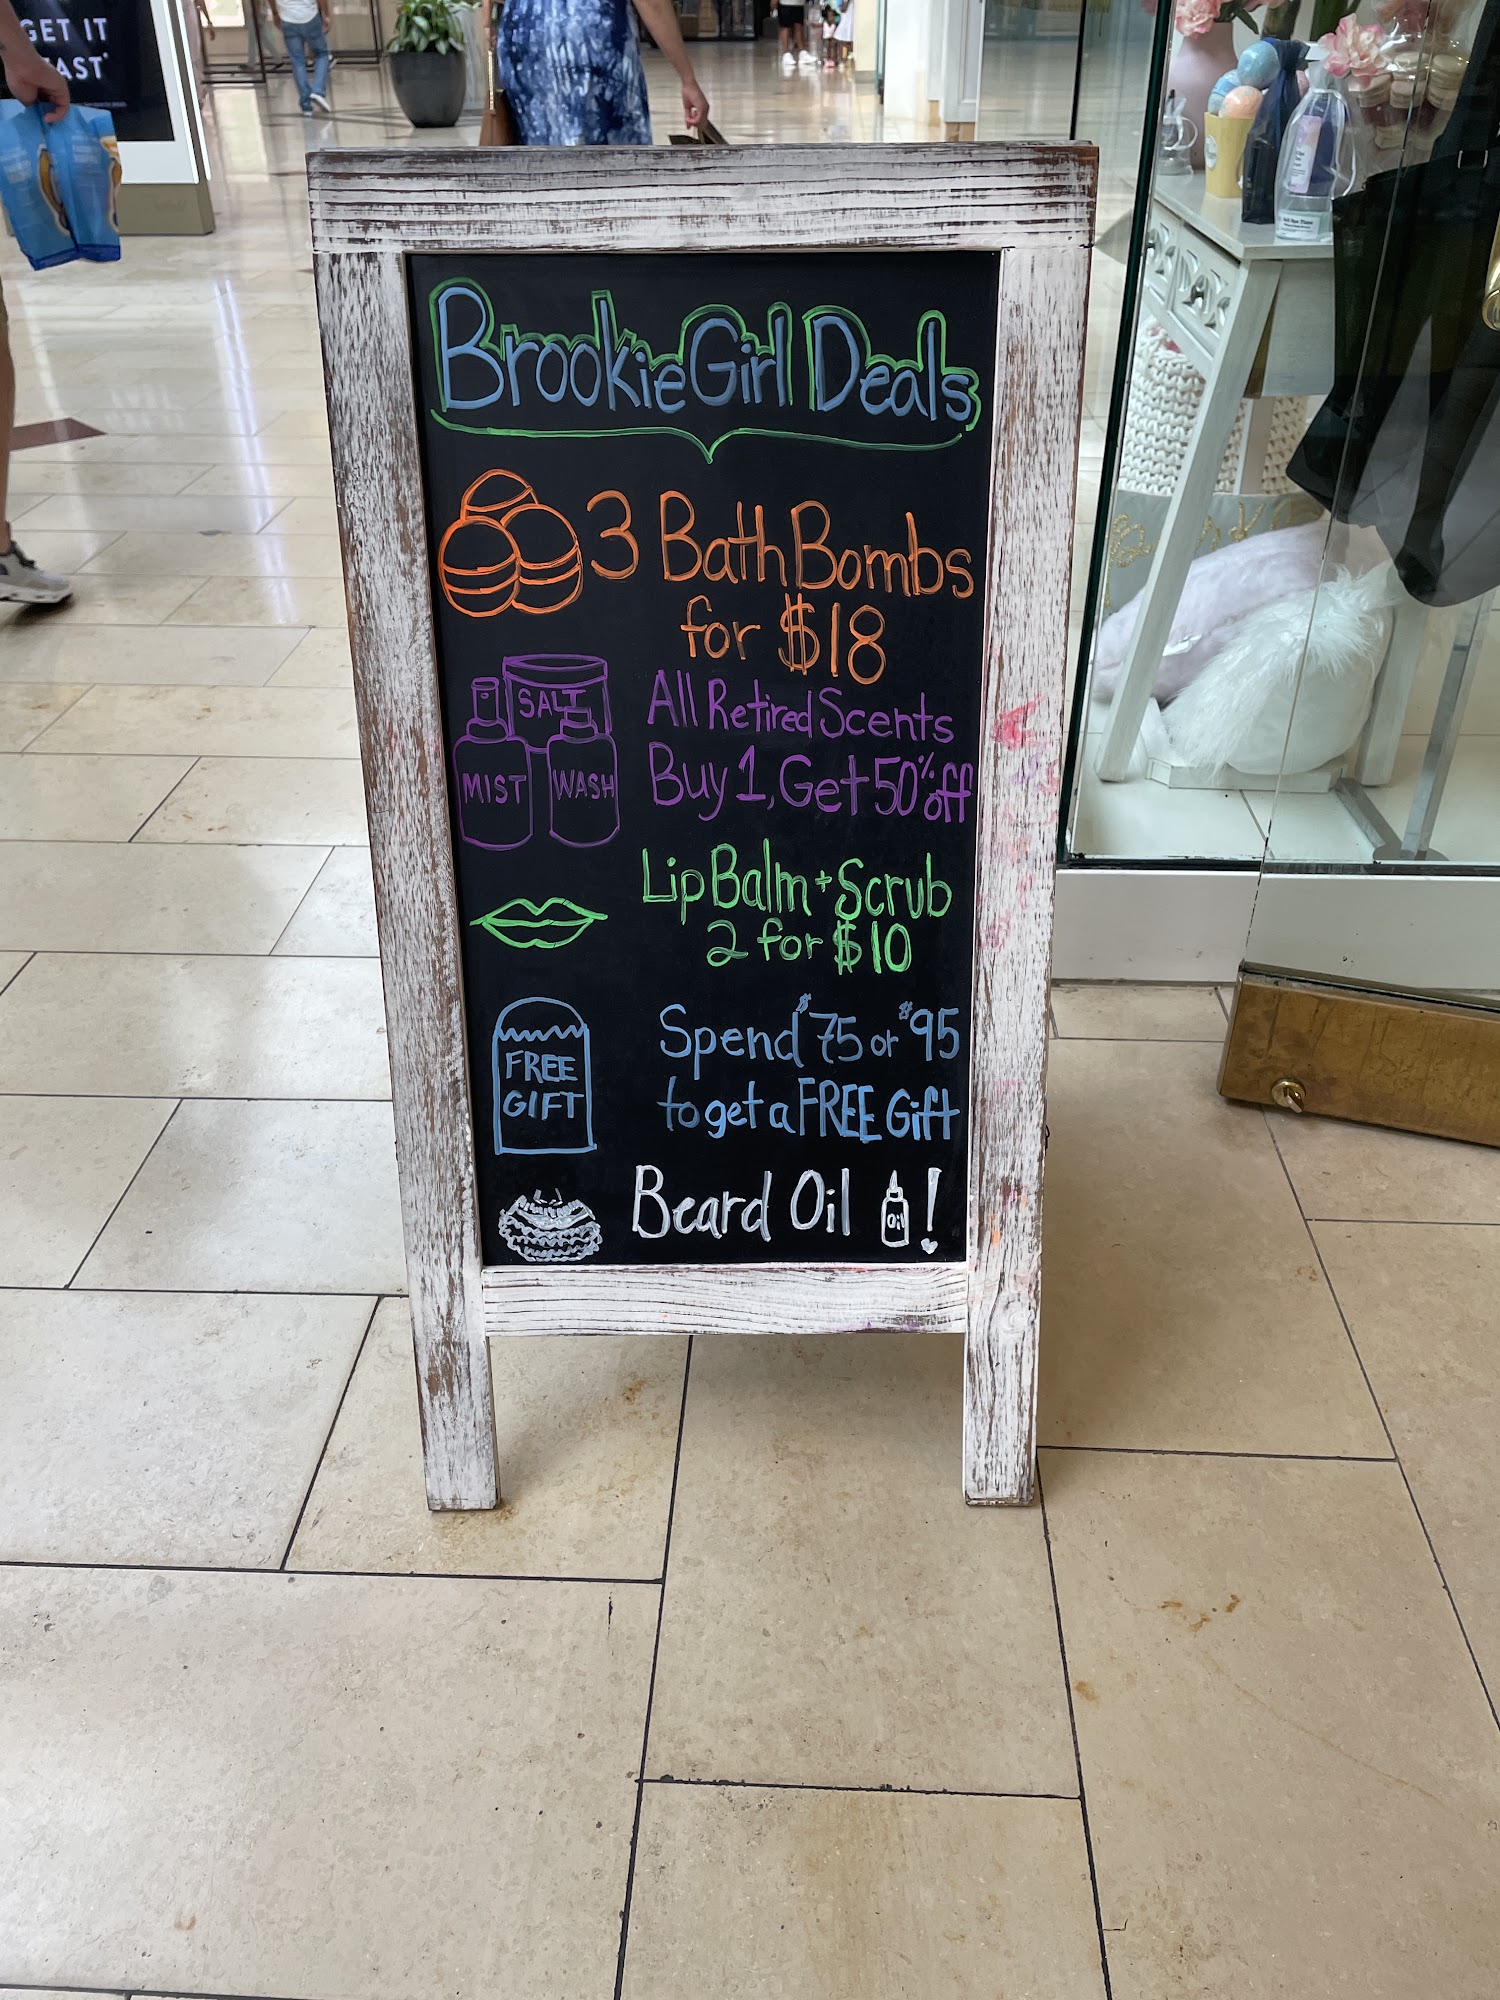 GET IT
FAST*
BrookieGirl Deals
3 Bath Bombs
for $18
SALT
MIST
WASH
All Retired Scents
Buy 1, Get 50% off
Lip Balm + Scrub
2 for $10
FREE
GIFT
Spend $75 or $95
to get a FREE Gift
Beard Oil
Oil
!